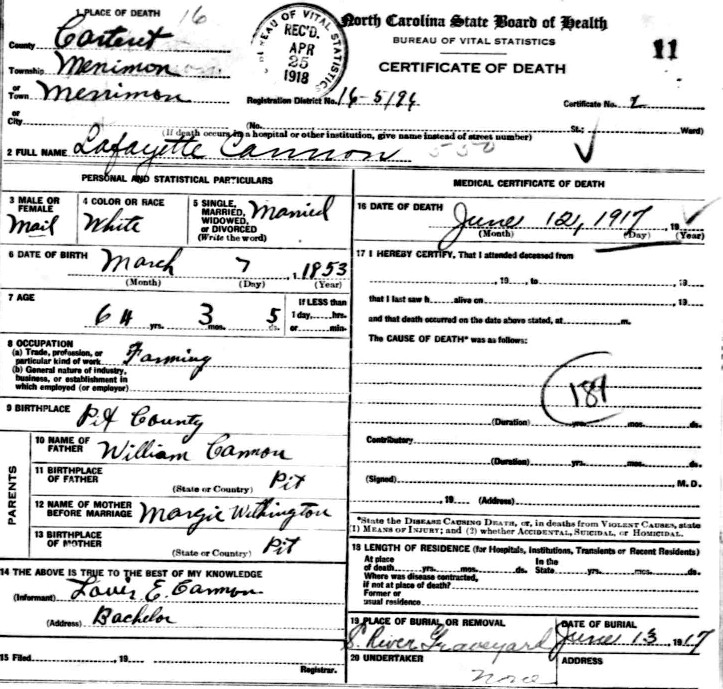 1 PLACE OF DEATH 16
County Carteret
Township Merrimon
or
Town Merrimon
or
City
BUREAU OF VITAL STATISTICS
REC'D.
APR
25
1918
North Carolina State Board of Health
BUREAU OF VITAL STATISTICS
CERTIFICATE OF DEATH
11
Registration District No. 16-5194 Certificate No. 2
(No. St.; Ward)
(If death occurs in a hospital or other institution, give name instead of street number)
2 FULL NAME Lafayette Cannon 550
PERSONAL AND STATISTICAL PARTICULARS
3 MALE OR FEMALE Mail
4 COLOR OR RACE White
5 SINGLE, MARRIED, WIDOWED, or DIVORCED (Write the word) Married
6 DATE OF BIRTH March 7, 1853
(Month) (Day) (Year)
7 AGE 64 yrs. 3 mos. 5 ds.
If LESS than
1 day, hrs.
or min.
8 OCCUPATION
(a) Trade, profession, or
particular kind of work Farming
(b) General nature of industry,
business, or establishment in
which employed (or employer)
9 BIRTHPLACE Pit County
PARENTS
10 NAME OF FATHER William Cannon
11 BIRTHPLACE OF FATHER
(State or Country) Pit
12 NAME OF MOTHER BEFORE MARRIAGE Margie Withington
13 BIRTHPLACE OF MOTHER
(State or Country) Pit
14 THE ABOVE IS TRUE TO THE BEST OF MY KNOWLEDGE
(Informant) E. Cannon
(Address) Bachelor
15 Filed , 19
Registrar.
MEDICAL CERTIFICATE OF DEATH
16 DATE OF DEATH June 12, 1917, 19
(Month) (Day) (Year)
17 I HEREBY CERTIFY, That I attended deceased from
, 19 , to , 19
that I last saw h alive on , 19
and that death occurred on the date above stated, at m.
The CAUSE OF DEATH* was as follows:
189
(Duration) yrs. mos. ds.
Contributory
(Duration) yrs. mos. ds.
(Signed) , M. D.
, 19 (Address)
*State the DISEASE CAUSING DEATH, or, in deaths from VIOLENT CAUSES, state
(1) MEANS OF INJURY; and (2) whether ACCIDENTAL, SUICIDAL, or HOMICIDAL.
18 LENGTH OF RESIDENCE (for Hospitals, Institutions, Transients or Recent Residents)
At place In the
of death yrs. mos. ds. State yrs. mos. ds.
Where was disease contracted,
if not at place of death?
Former or
usual residence
19 PLACE OF BURIAL OR REMOVAL DATE OF BURIAL
S. River Graveyard June 13 1917
20 UNDERTAKER ADDRESS
None